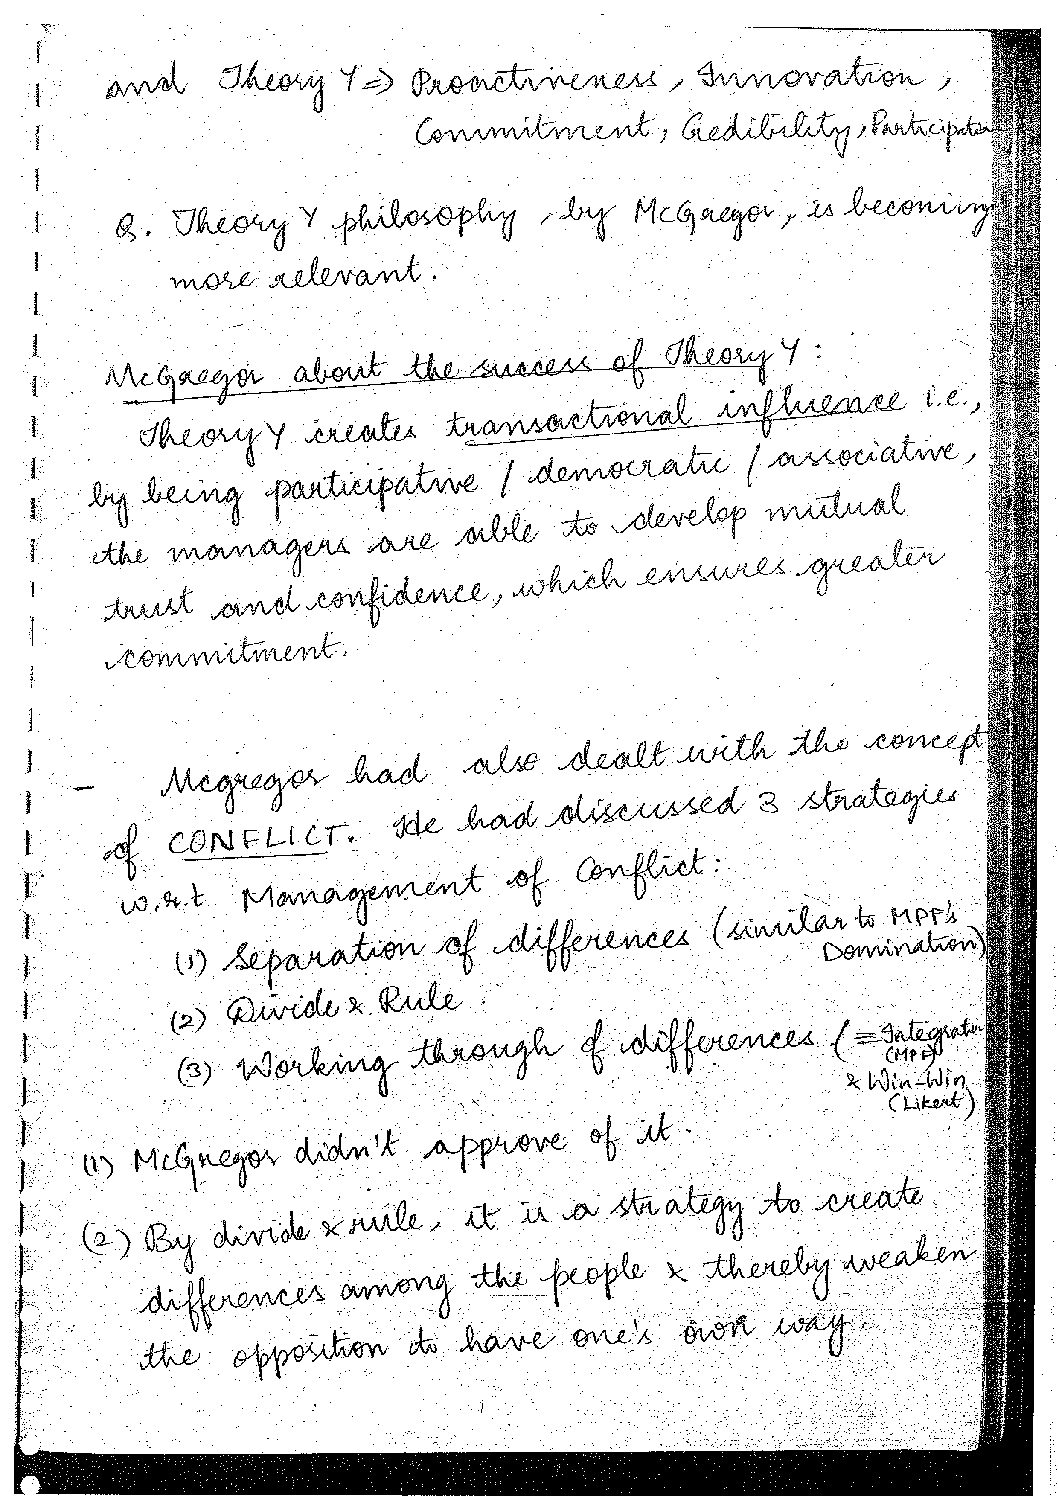 and Theory Y ⇒ Proactiveness, Innovation,
Commitment, Credibility, Participation
Q. Theory Y philosophy, by McGregor, is becoming
more relevant.
McGregor about the success of Theory Y :
Theory Y creates transactional influence i.e.,
by being participative / democratic / associative,
the managers are able to develop mutual
trust and confidence, which ensures greater
commitment.
- Mcgregor had also dealt with the concept
of CONFLICT. He had discussed 3 strategies
w.r.t Management of Conflict:
(1) Separation of differences (similar to MPF's
Domination)
(2) Divide & Rule
(3) Working through of differences (= Integration
(MPF)
& Win-Win
(Likert)
(1) McGregor didn't approve of it.
(2) By divide & rule, it is a strategy to create
differences among the people & thereby weaken
the opposition to have one's own way.